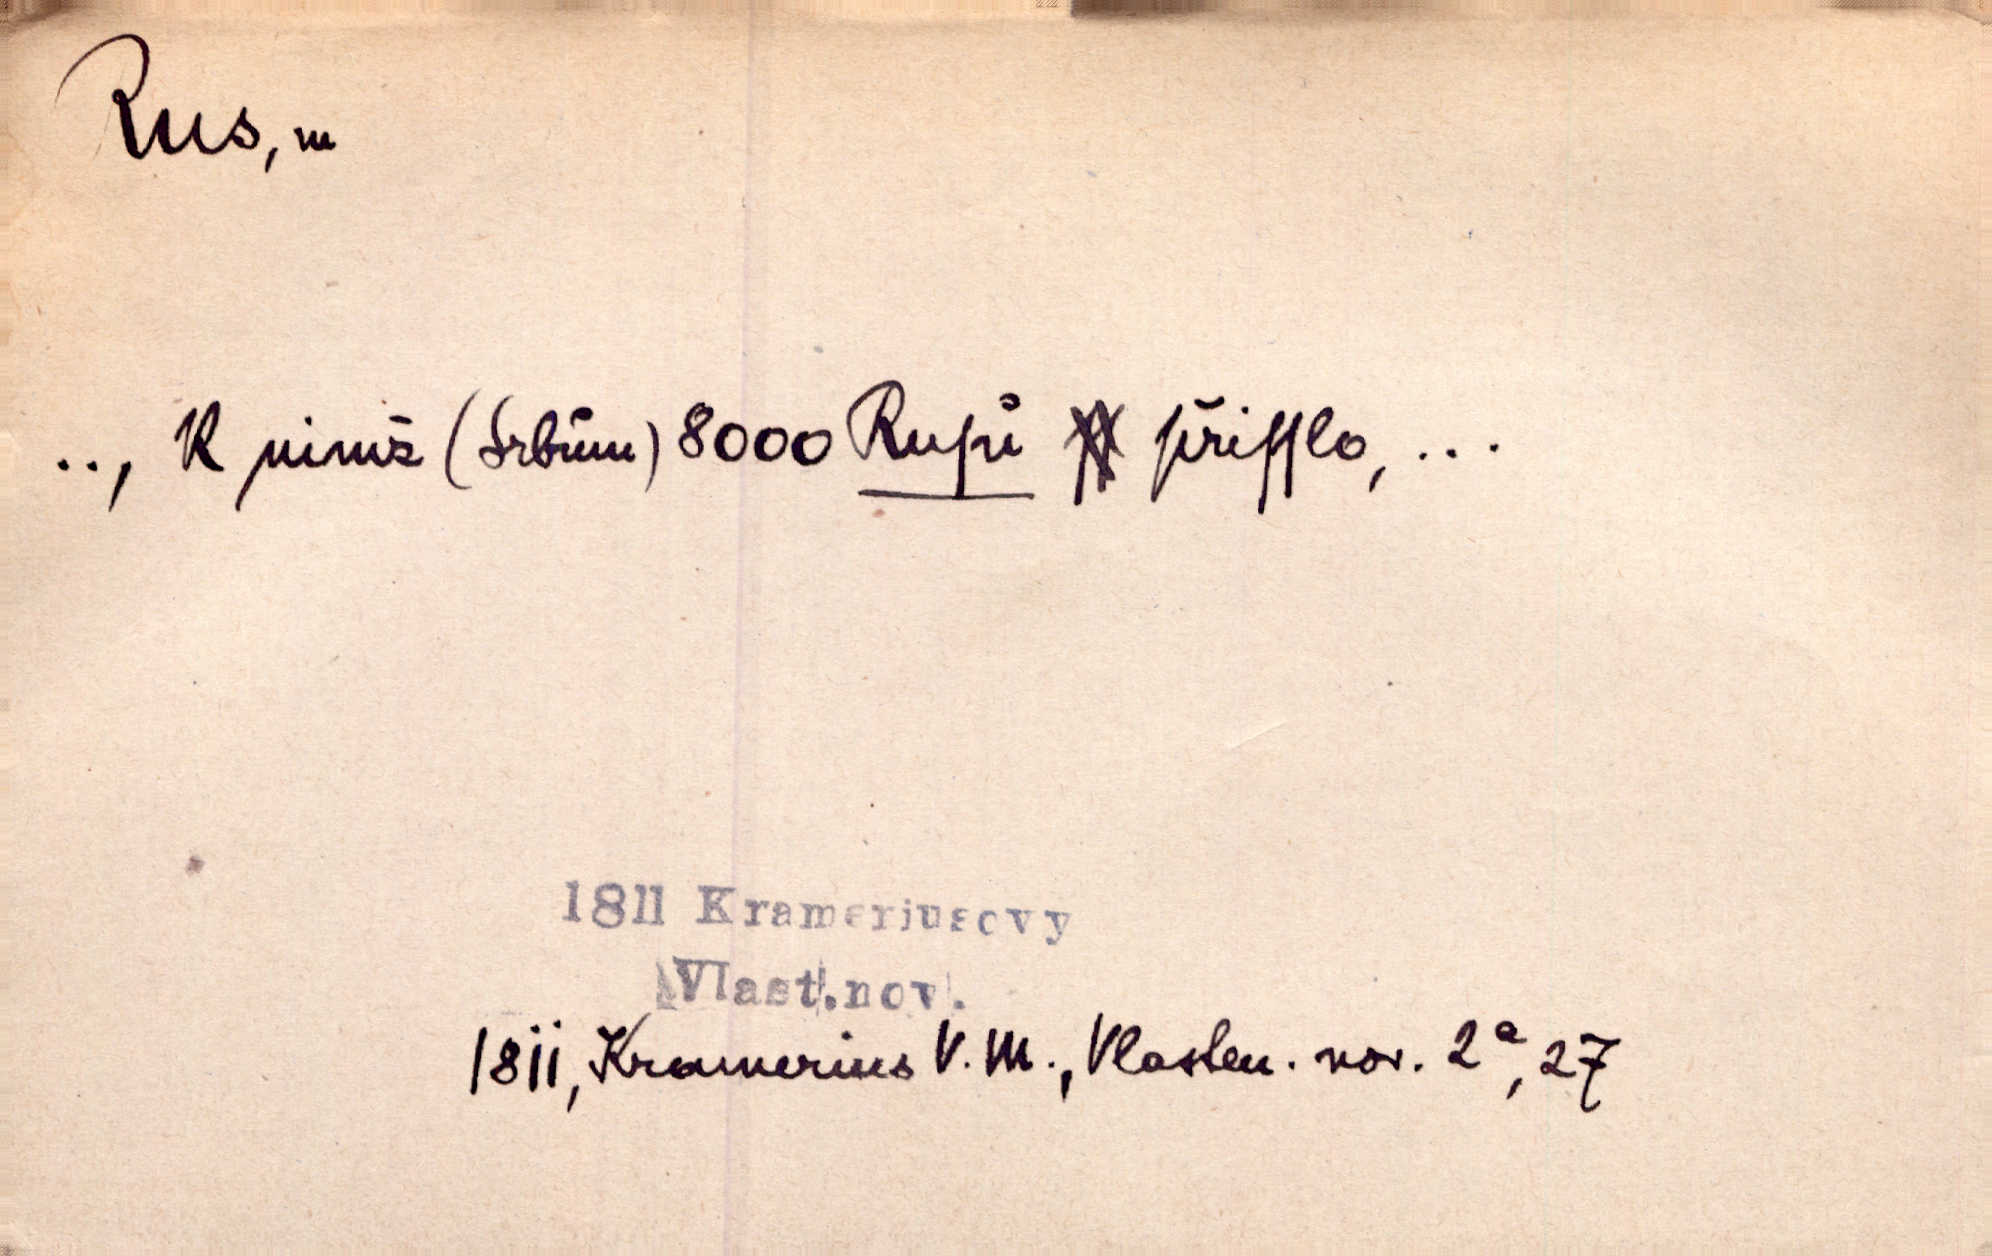 Rus, m
.., K nimž (Srbům) 8000 Ruſů přiſſlo, ...
1811 Krameriusovy
Vlast.nov.
1811, Kramerius V. M., Vlasten. nov. 2a, 27